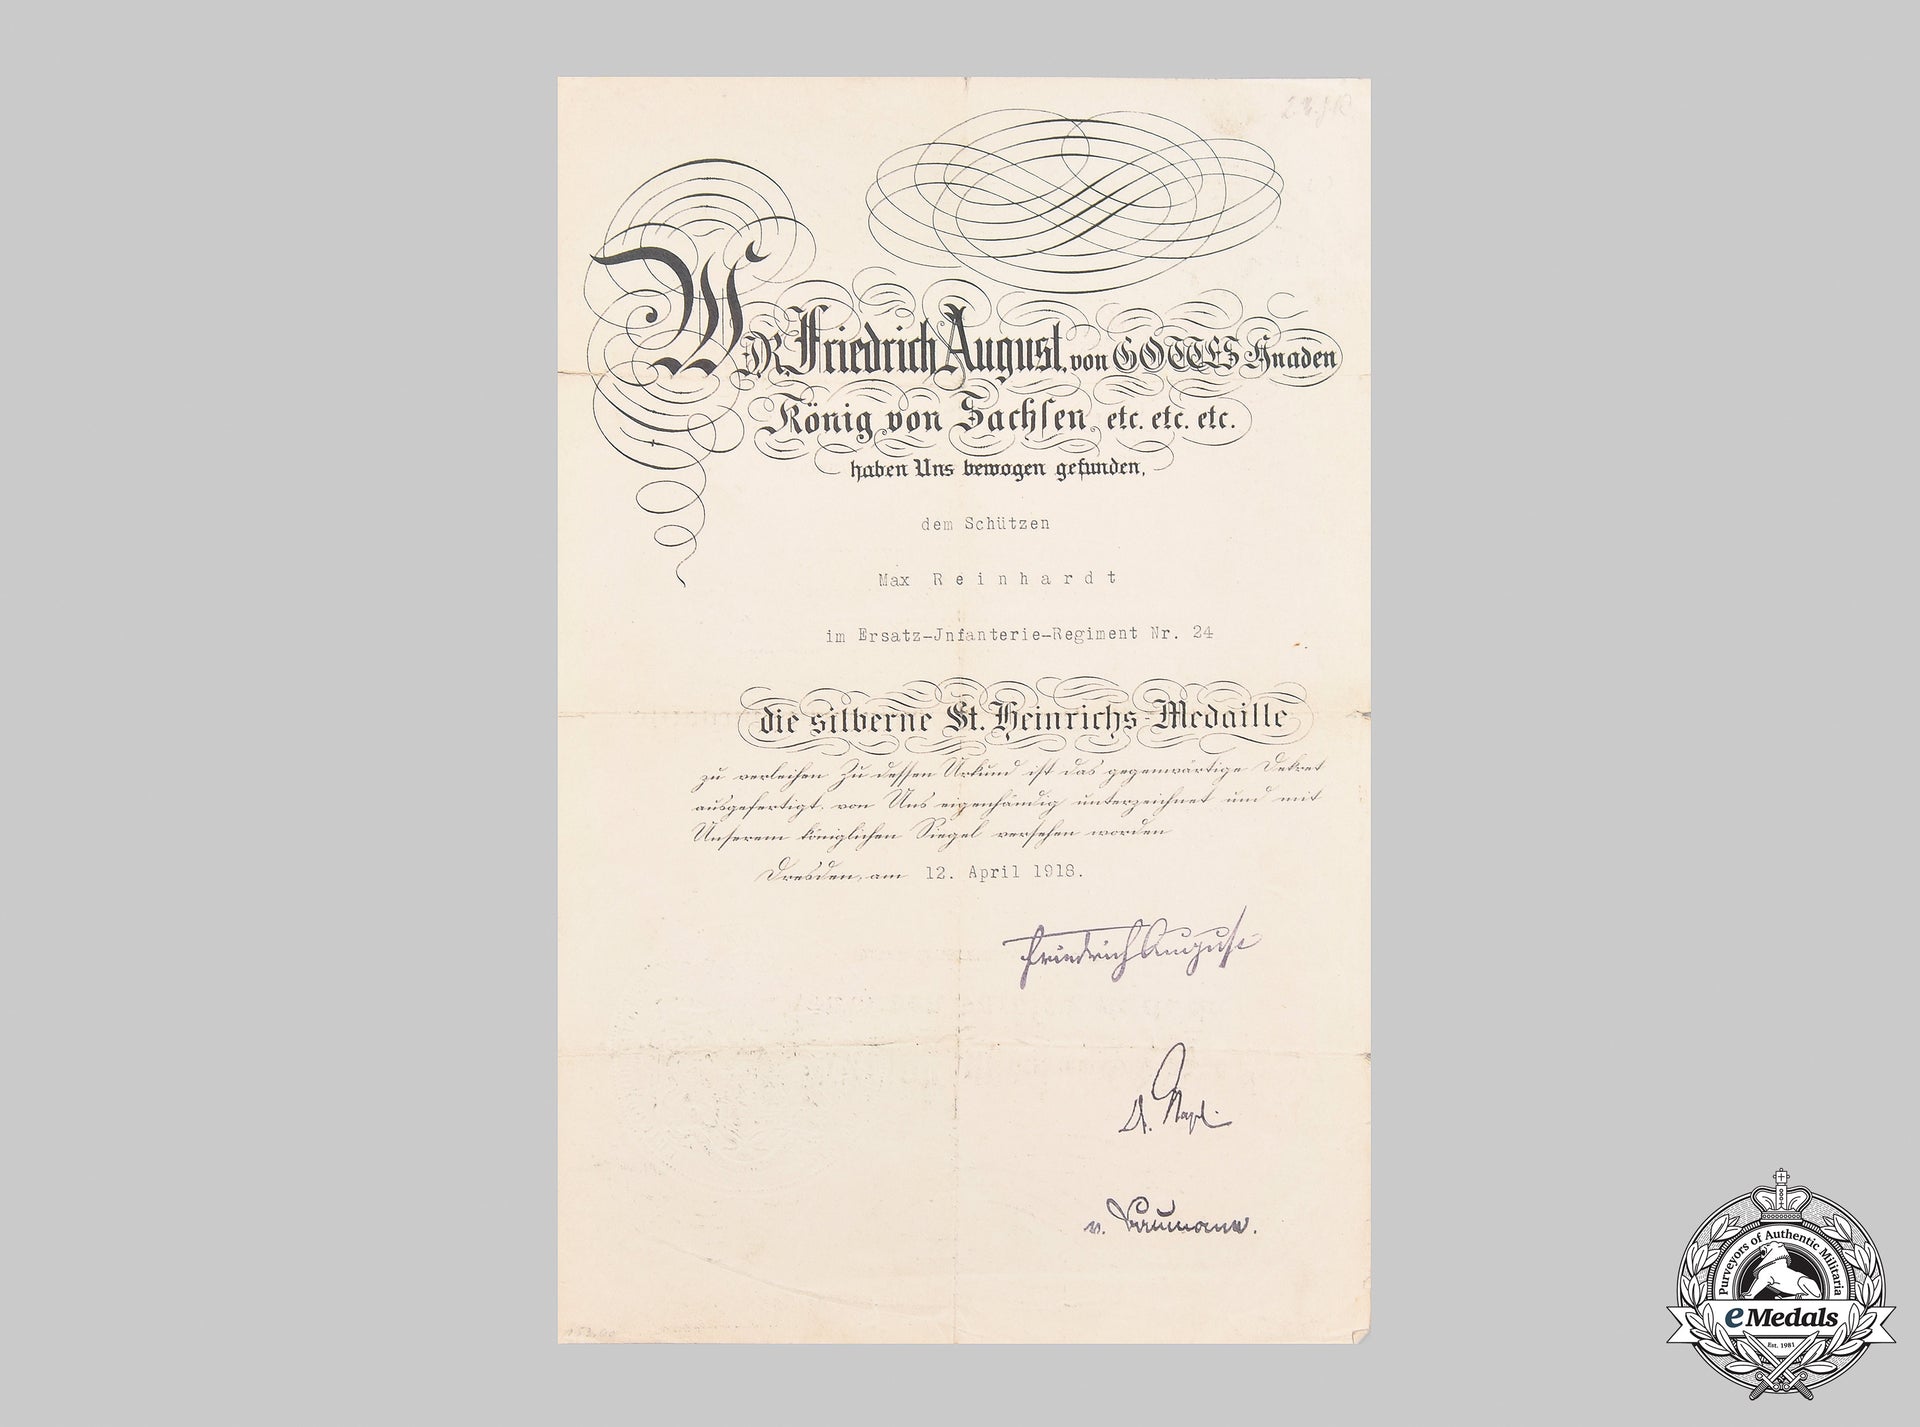 WIR, Friedrich August, von GOTTES Gnaden
König von Sachsen etc. etc. etc.
haben Uns bewogen gefunden,
dem Schützen
Max Reinhardt
im Ersatz-Jnfanterie-Regiment Nr. 24
die silberne St. Heinrichs-Medaille
zu verleihen Zu dessen Urkund ist das gegenwärtige Dekret
ausgefertigt, von Uns eigenhändig unterzeichnet und mit
Unserem königlichen Siegel versehen worden
Dresden, am 12. April 1918.
Friedrich August
v.
Purveyors of Authentic Militaria
eMedals
Est. 1981